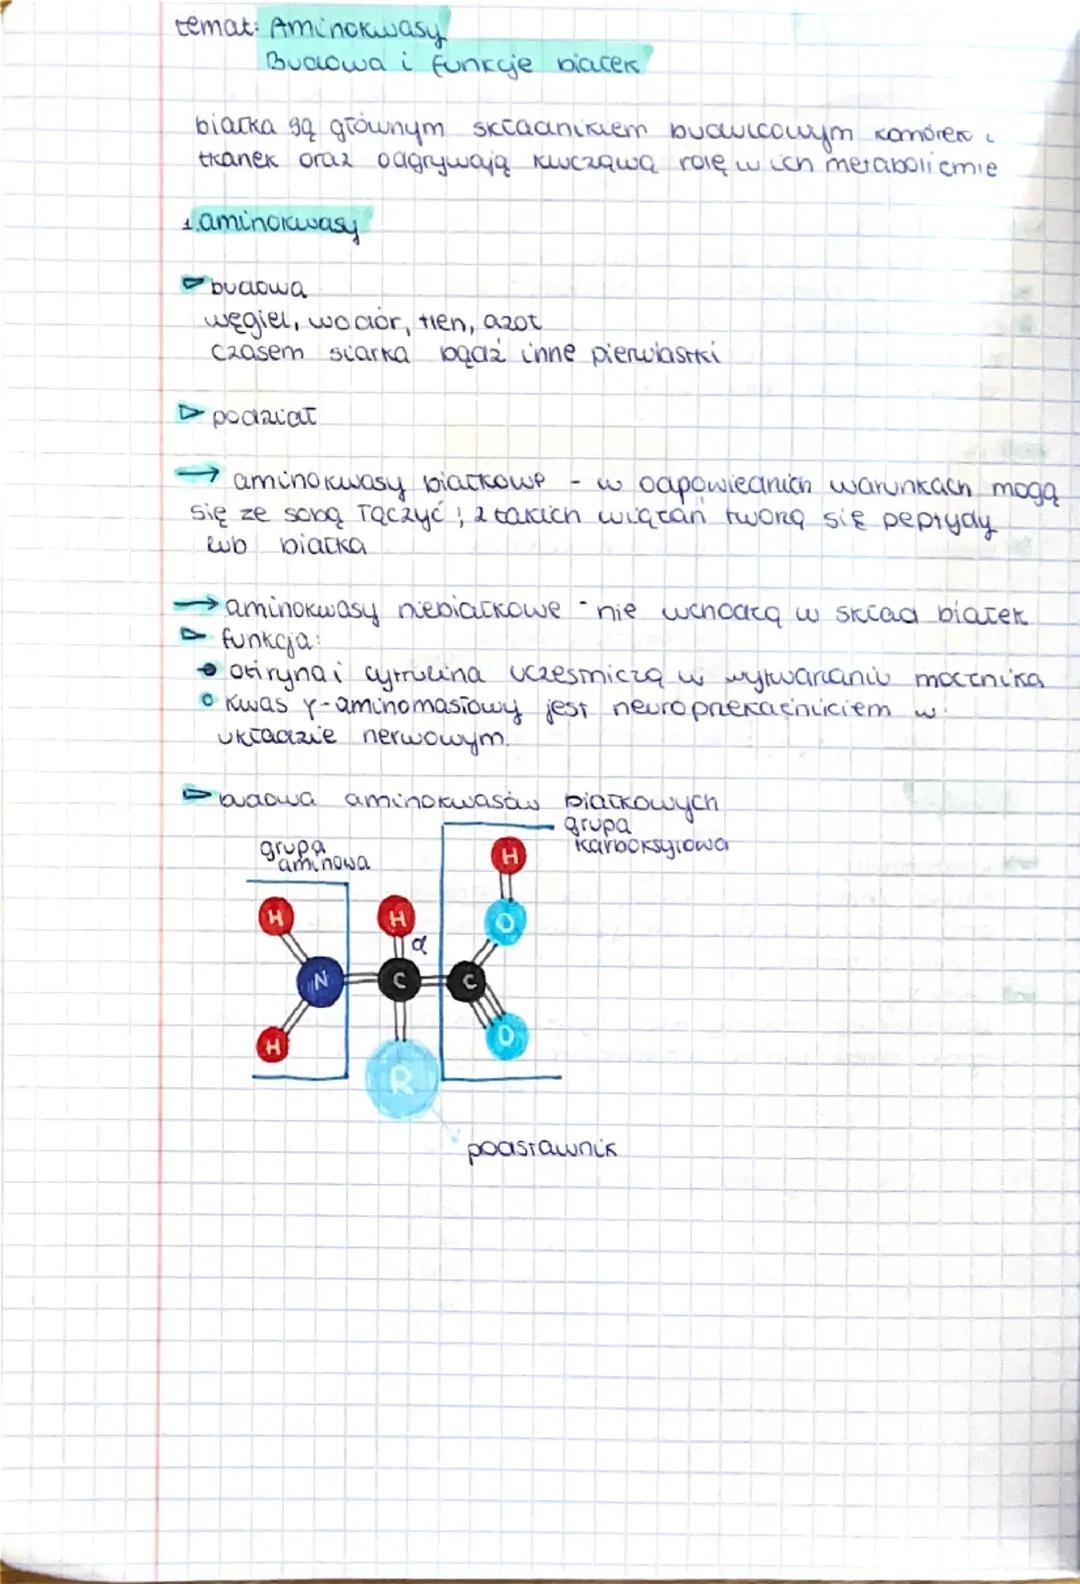 temat: Aminokwasy
Budowa i funkcje białek
białka są głównym składnikiem budulcowym komórek i
tkanek oraz odgrywają kluczową rolę w ich metabolizmie
1. aminokwasy
budowa
węgiel, wodór, tlen, azot
czasem siarka bądź inne pierwiastki
podział
→ aminokwasy białkowe - w odpowiednich warunkach mogą
się ze sobą łączyć; z takich wiązań tworzą się peptydy
lub białka
→ aminokwasy niebiałkowe - nie wchodzą w skład białek
funkcja:
otiryna i cytrulina uczestniczą w wytwarzaniu mocznika
kwas γ-aminomasłowy jest neuroprzekaźnikiem w
układzie nerwowym.
budowa aminokwasów białkowych
grupa
aminowa
grupa
karboksylowa
H
H
H
O
α
N
C
C
H
O
R
podstawnik